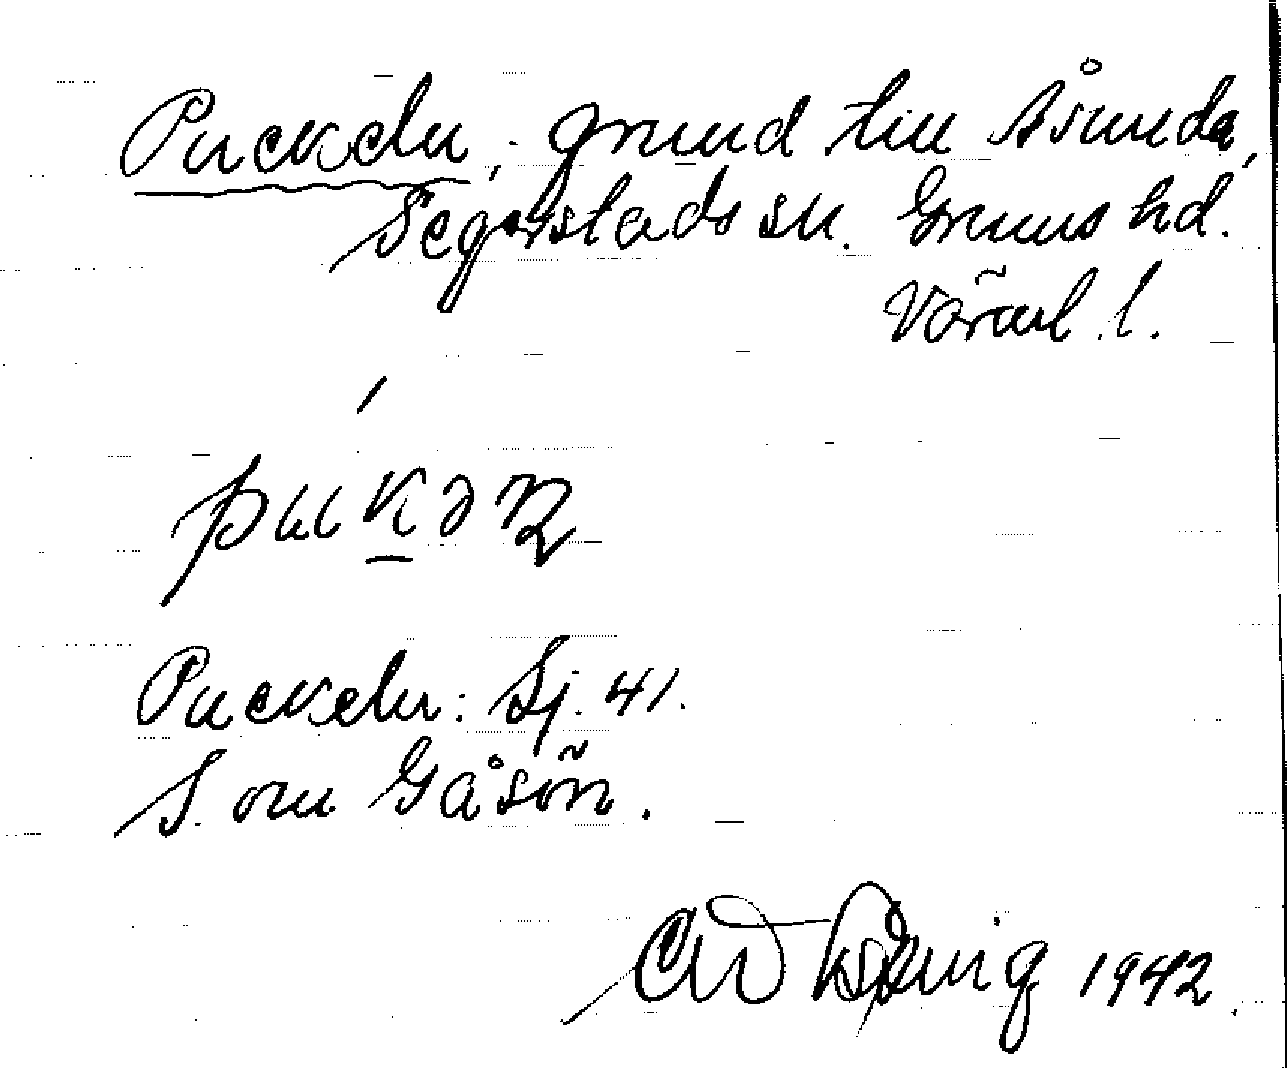 Puckeln, grund till Åsunda,
Segerstads sn. Grums hd.
Värml. l.
pukəɲ
Puckeln: Sj. 41.
S. om Gåsön.
1942